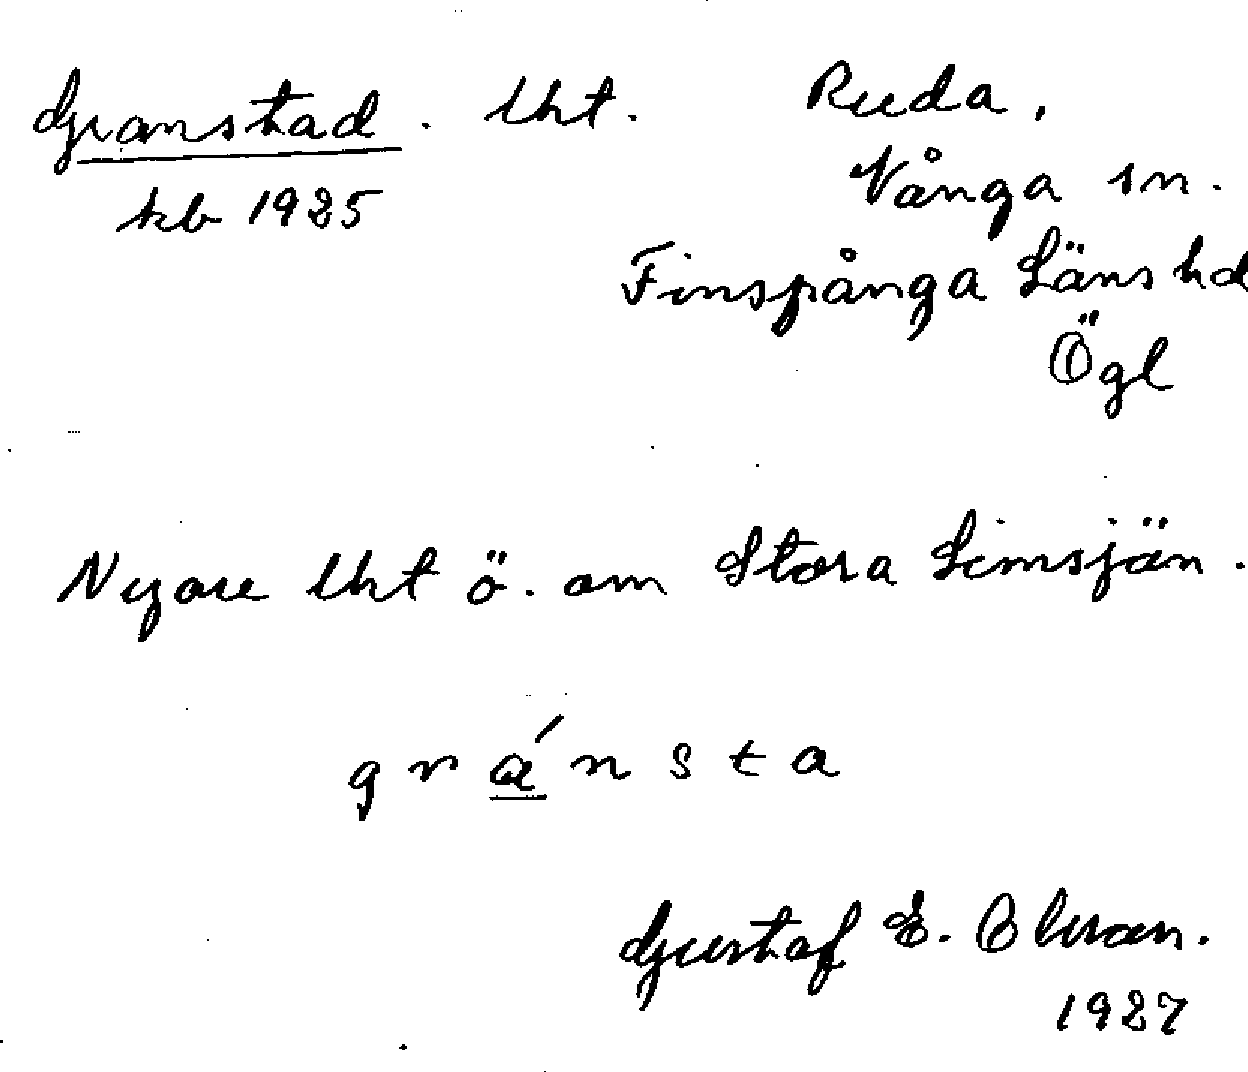 Granstad. lht. Ruda,
kb 1925 Vånga sn.
Finspånga Läns hd
Ögl
Nyare lht ö. om Stora Limsjön.
g r á n s t a
Gustaf E. Olson.
1927